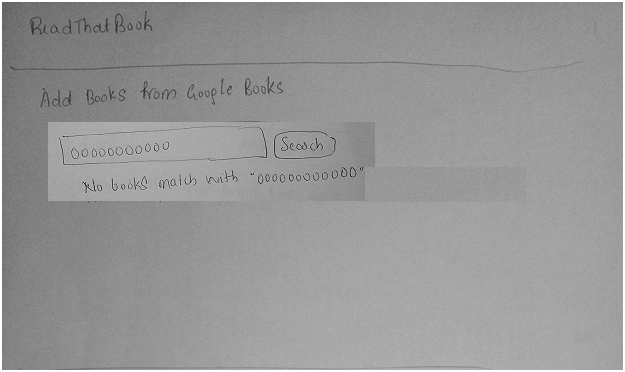 ReadThatBook
Add Books from Google Books
00000000000 Search
No books match with "000000000000"